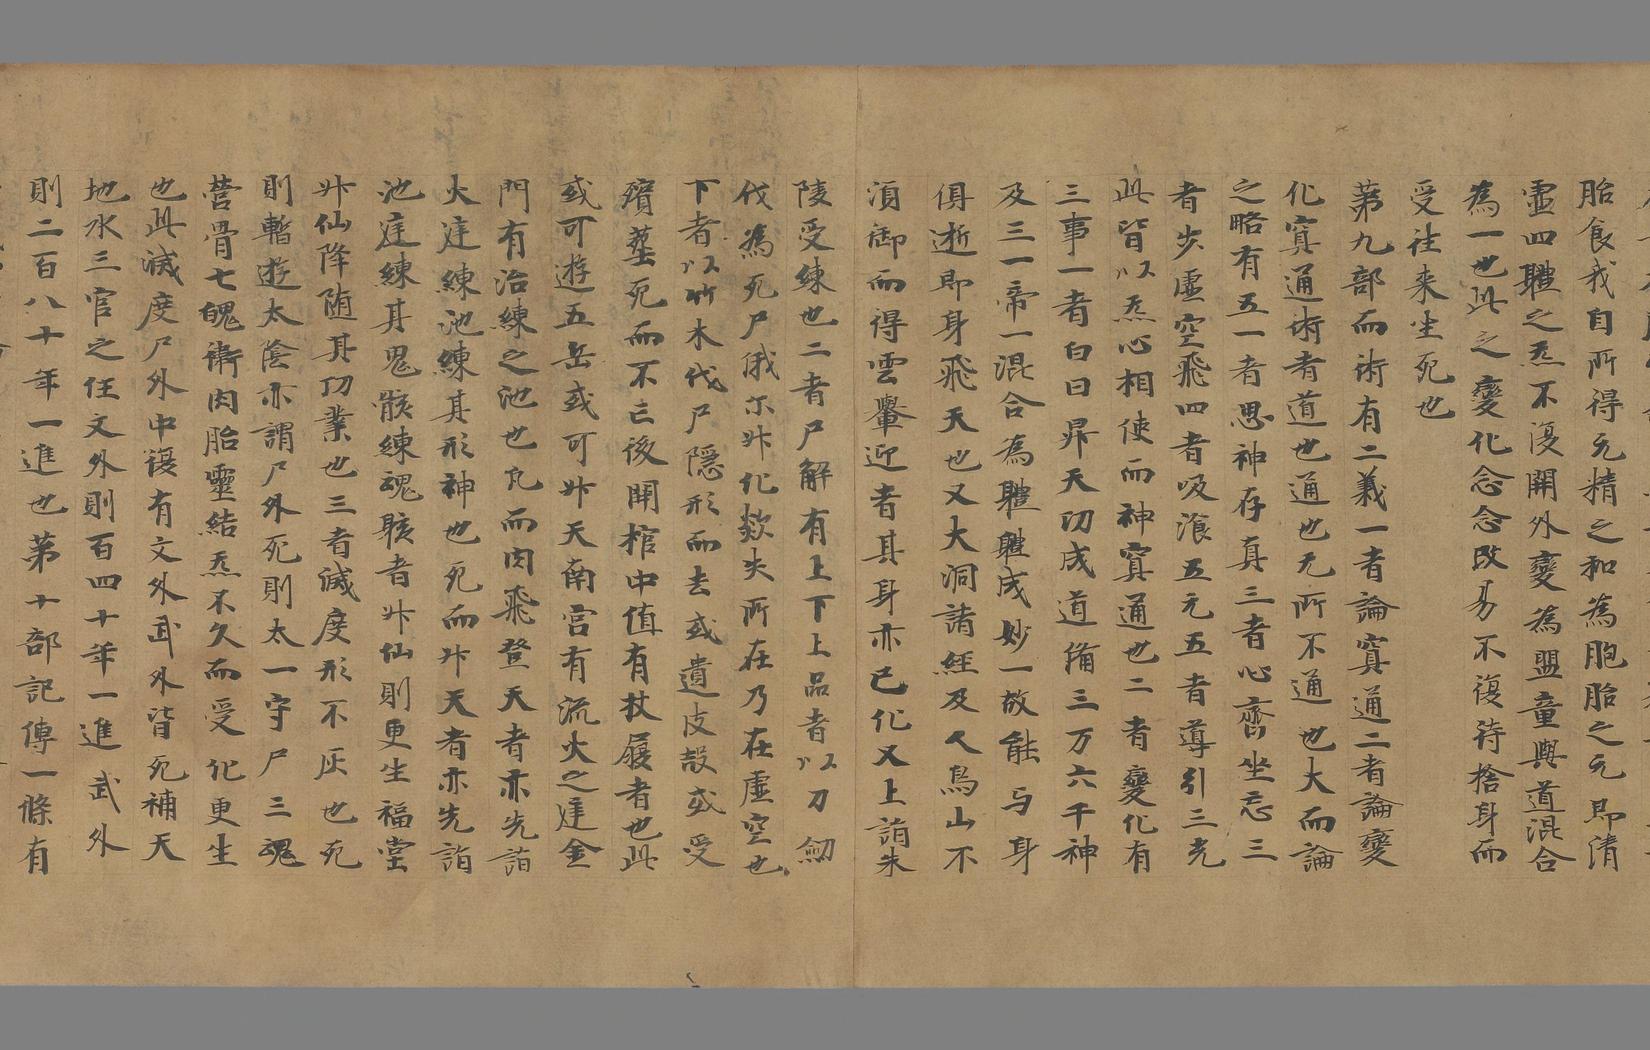 胎食我自所得元精之和為胞胎之元即清
虛四體之炁不復開外變為盟童與道混合
為一也此之變化念念改易不復待捨身而
受往来生死也
第九部而術有二義一者論寘通二者論變
化寘通術者道也通也无所不通也大而論
之略有五一者思神存真二者心齋坐忘三
者步虛空飛四者吸飡五元五者導引三光
此皆以炁心相使而神寘通也二者變化有
三事一者白日昇天功成道備三万六千神
及三一帝一混合為體體成妙一故能与身
俱逝即身飛天也又大洞諸經及人鳥山不
湏御而得雲轝迎者其身亦已化又上詣朱
陵受練也二者尸解有上下上品者以刀劒
伐為死尸俄尓升化欻失所在乃在虛空也
下者以竹木代尸隱形而去或遺皮㲉或受
殯葬死而不亡後開棺中值有杖屐者也此
或可遊五岳或可升天南宮有流火之庭金
門有治練之池也凢而肉飛登天者亦先詣
火庭練池練其形神也死而升天者亦先詣
池庭練其鬼骸練魂骸者升仙則更生福堂
升仙降随其功業也三者滅度形不灰也死
則暫遊太陰亦謂尸外死則太一守尸三魂
營骨七魄衛肉胎靈結炁不久而受化更生
也此滅度尸外中復有文外武外皆死補天
地水三官之任文外則百四十年一進武外
則二百八十年一進也第十部記傳一條有